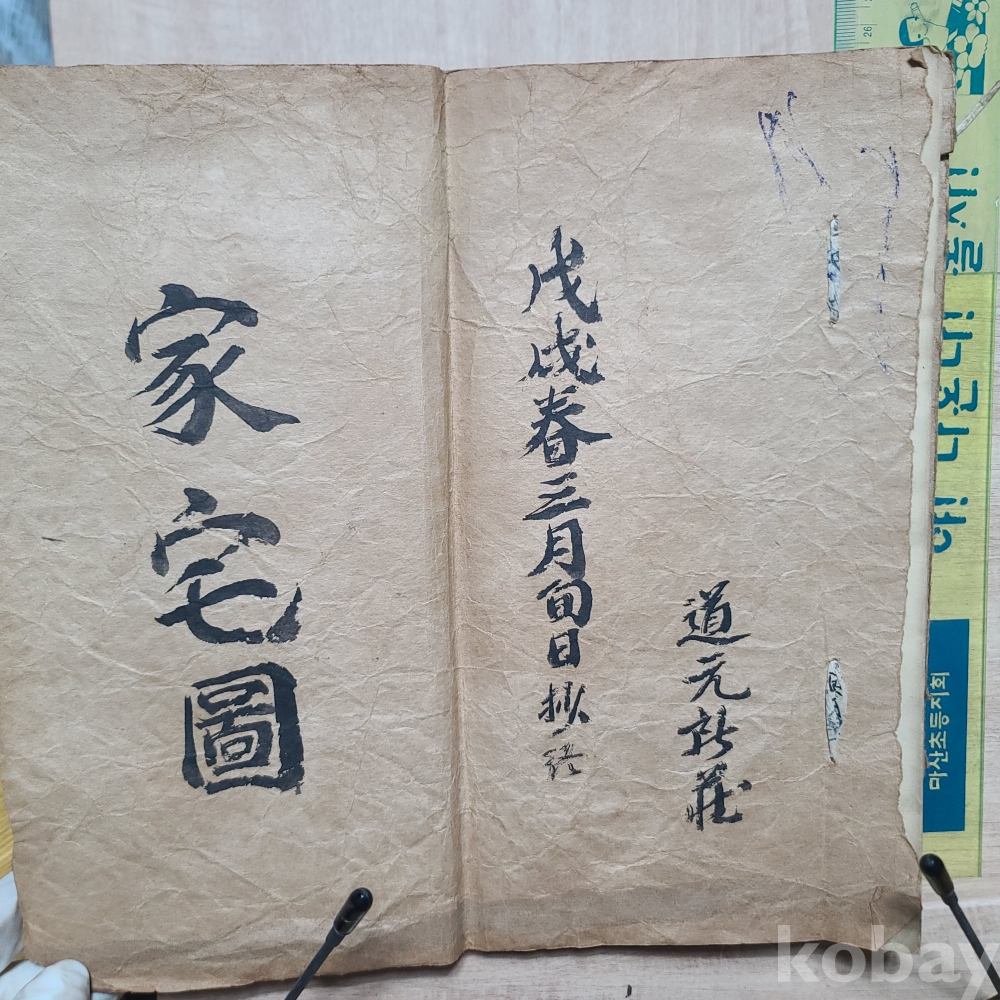 道元新莊
戊戌春三月旬日抄謄
家宅圖
마산초등지회
26
kobay